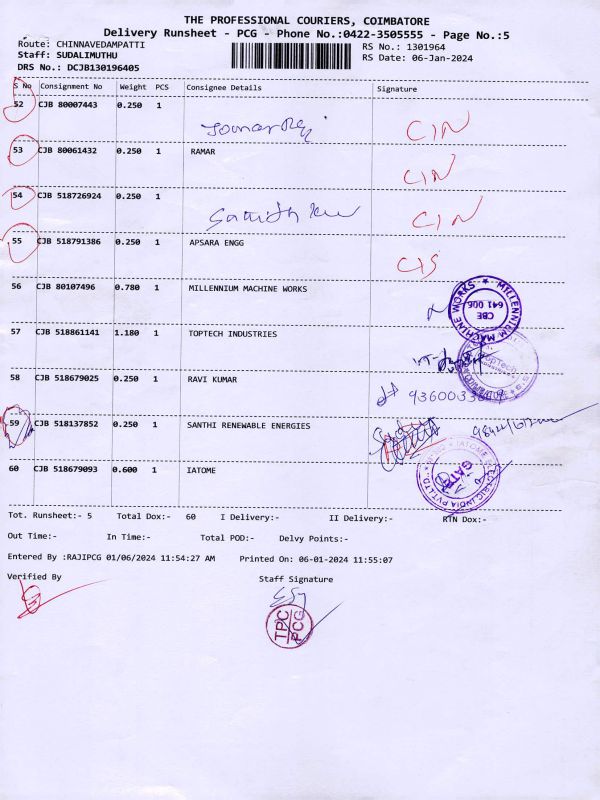 THE PROFESSIONAL COURIERS, COIMBATORE
Delivery Runsheet - PCG - Phone No.:0422-3505555 - Page No.:5
Route: CHINNAVEDAMPATTI
RS No.: 1301964
Staff: SUDALIMUTHU
RS Date: 06-Jan-2024
DRS No.: DCJB130196405
S No Consignment No Weight PCS Consignee Details Signature
52 CJB 80007443 0.250 1
CIN
53 CJB 80061432 0.250 1 RAMAR
CIN
54 CJB 518726924 0.250 1
CIN
55 CJB 518791386 0.250 1 APSARA ENGG
CIS
56 CJB 80107496 0.780 1 MILLENNIUM MACHINE WORKS
MILLENNIEM MACHINE WORKS
CBE
641 006
57 CJB 518861141 1.180 1 TOPTECH INDUSTRIES
TopTech
58 CJB 518679025 0.250 1 RAVI KUMAR
59 CJB 518137852 0.250 1 SANTHI RENEWABLE ENERGIES
60 CJB 518679093 0.600 1 IATOME
GATE
Tot. Runsheet:- 5 Total Dox:- 60 I Delivery:- II Delivery:- RTN Dox:-
Out Time:- In Time:- Total POD:- Delvy Points:-
Entered By :RAJIPCG 01/06/2024 11:54:27 AM Printed On: 06-01-2024 11:55:07
Verified By Staff Signature
TPC
PCG